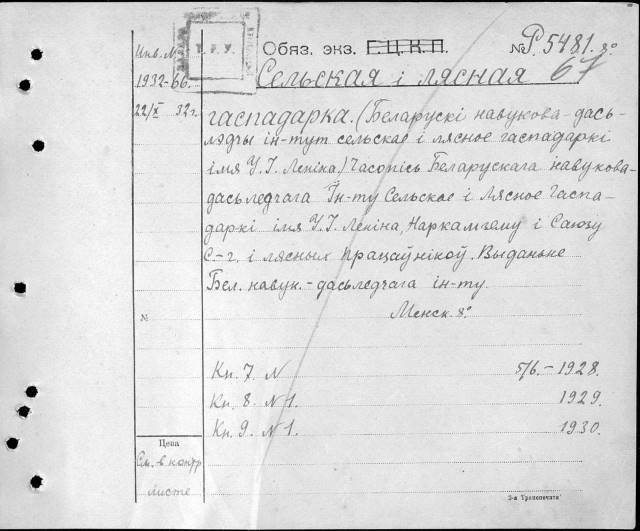 Инв. №
1932-66.
22/X 32 г.
Обяз. экз. Г.Ц.К.П. № Р5481.8°
67
Сельская і лясная
гаспадарка. (Беларускі навукова-дась-
лядчы ін-тут сельскае і лясное гаспадаркі
імя У.І. Леніна) Часопісь Беларускага навукова-
дасьледчага Ін-ту Сельскае і Лясное Гаспа-
даркі імя У.І. Леніна, Наркамзему і Саюзу
С-г. і лясных працаўнікоў. Выданьне
Бел. навук.-дасьледчага ін-ту.
Менск. 8°
№
Кн. 7. N 5/6.-1928.
Кн. 8. N 1. 1929.
Кн. 9. N 1. 1930.
Цена
См. в контр
листе
2-я Транспечати